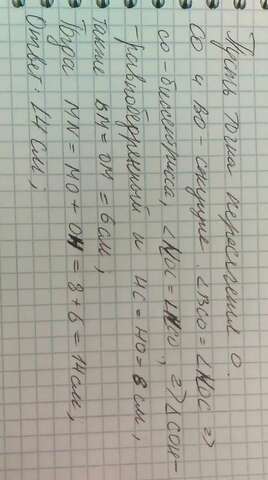 Пусть точка пересечения O.
CO и BO - секущие. ∠BCO = ∠NOC =>
CO - биссектриса, ∠NOC = ∠NCO, => △COH -
- равнобедренный и HC = HO = 8 см,
также BM = OM = 6 см,
Тогда MN = MO + OH = 8 + 6 = 14 см,
Ответ: 14 см;